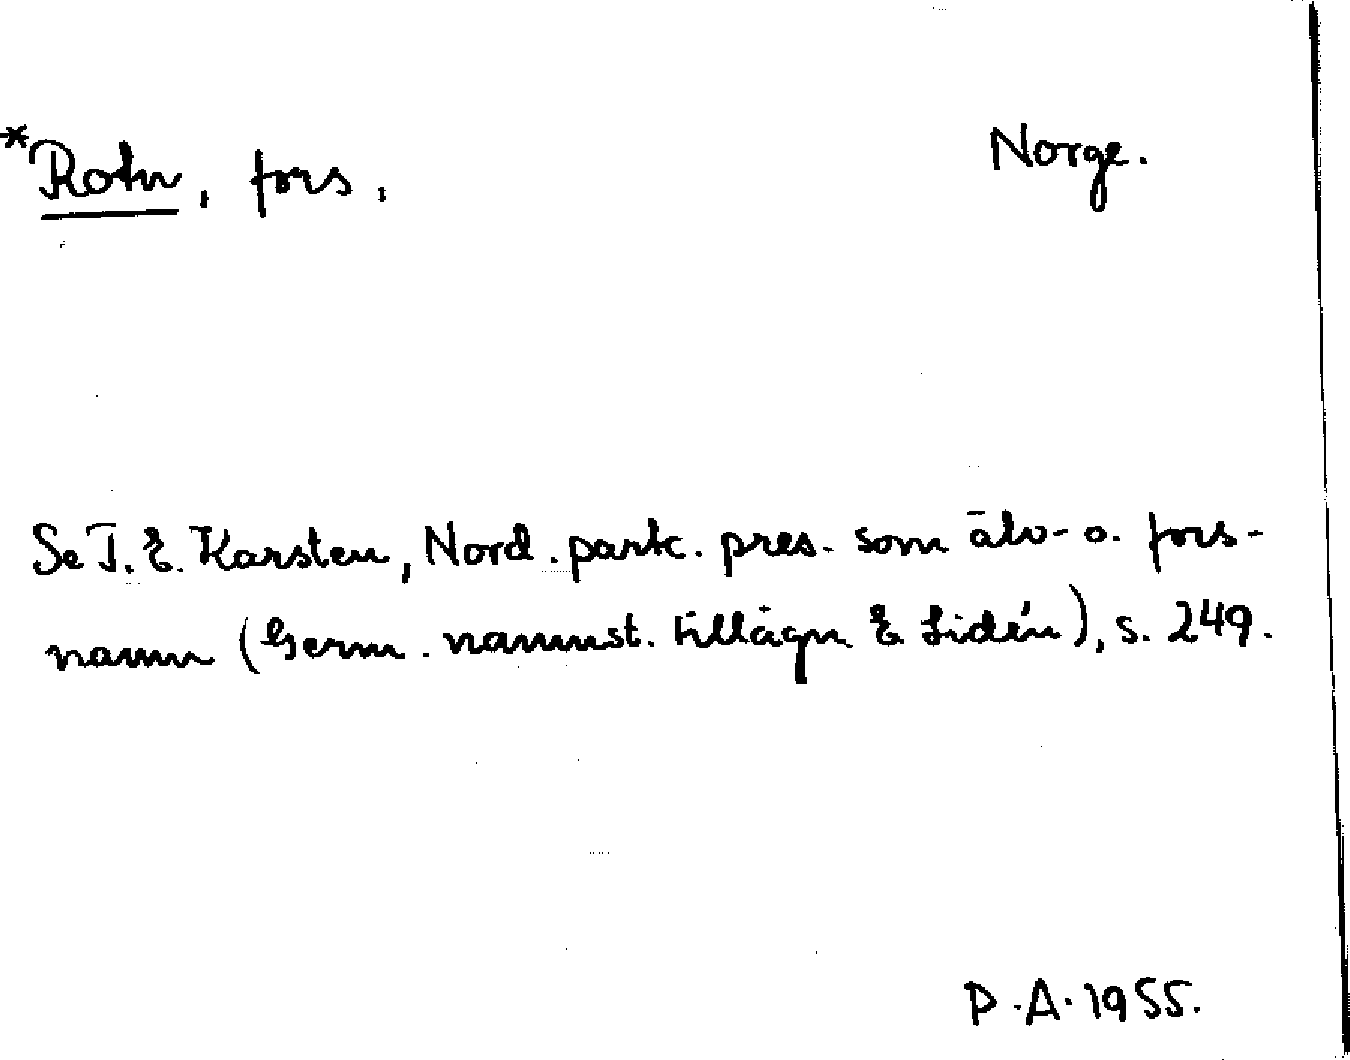 *Rotn, fors, Norge.
Se T. E. Karsten, Nord. partc. pres. som älv- o. fors-
namn (Germ. namnst. tillägn E Lidén), s. 249.
P.A. 1955.